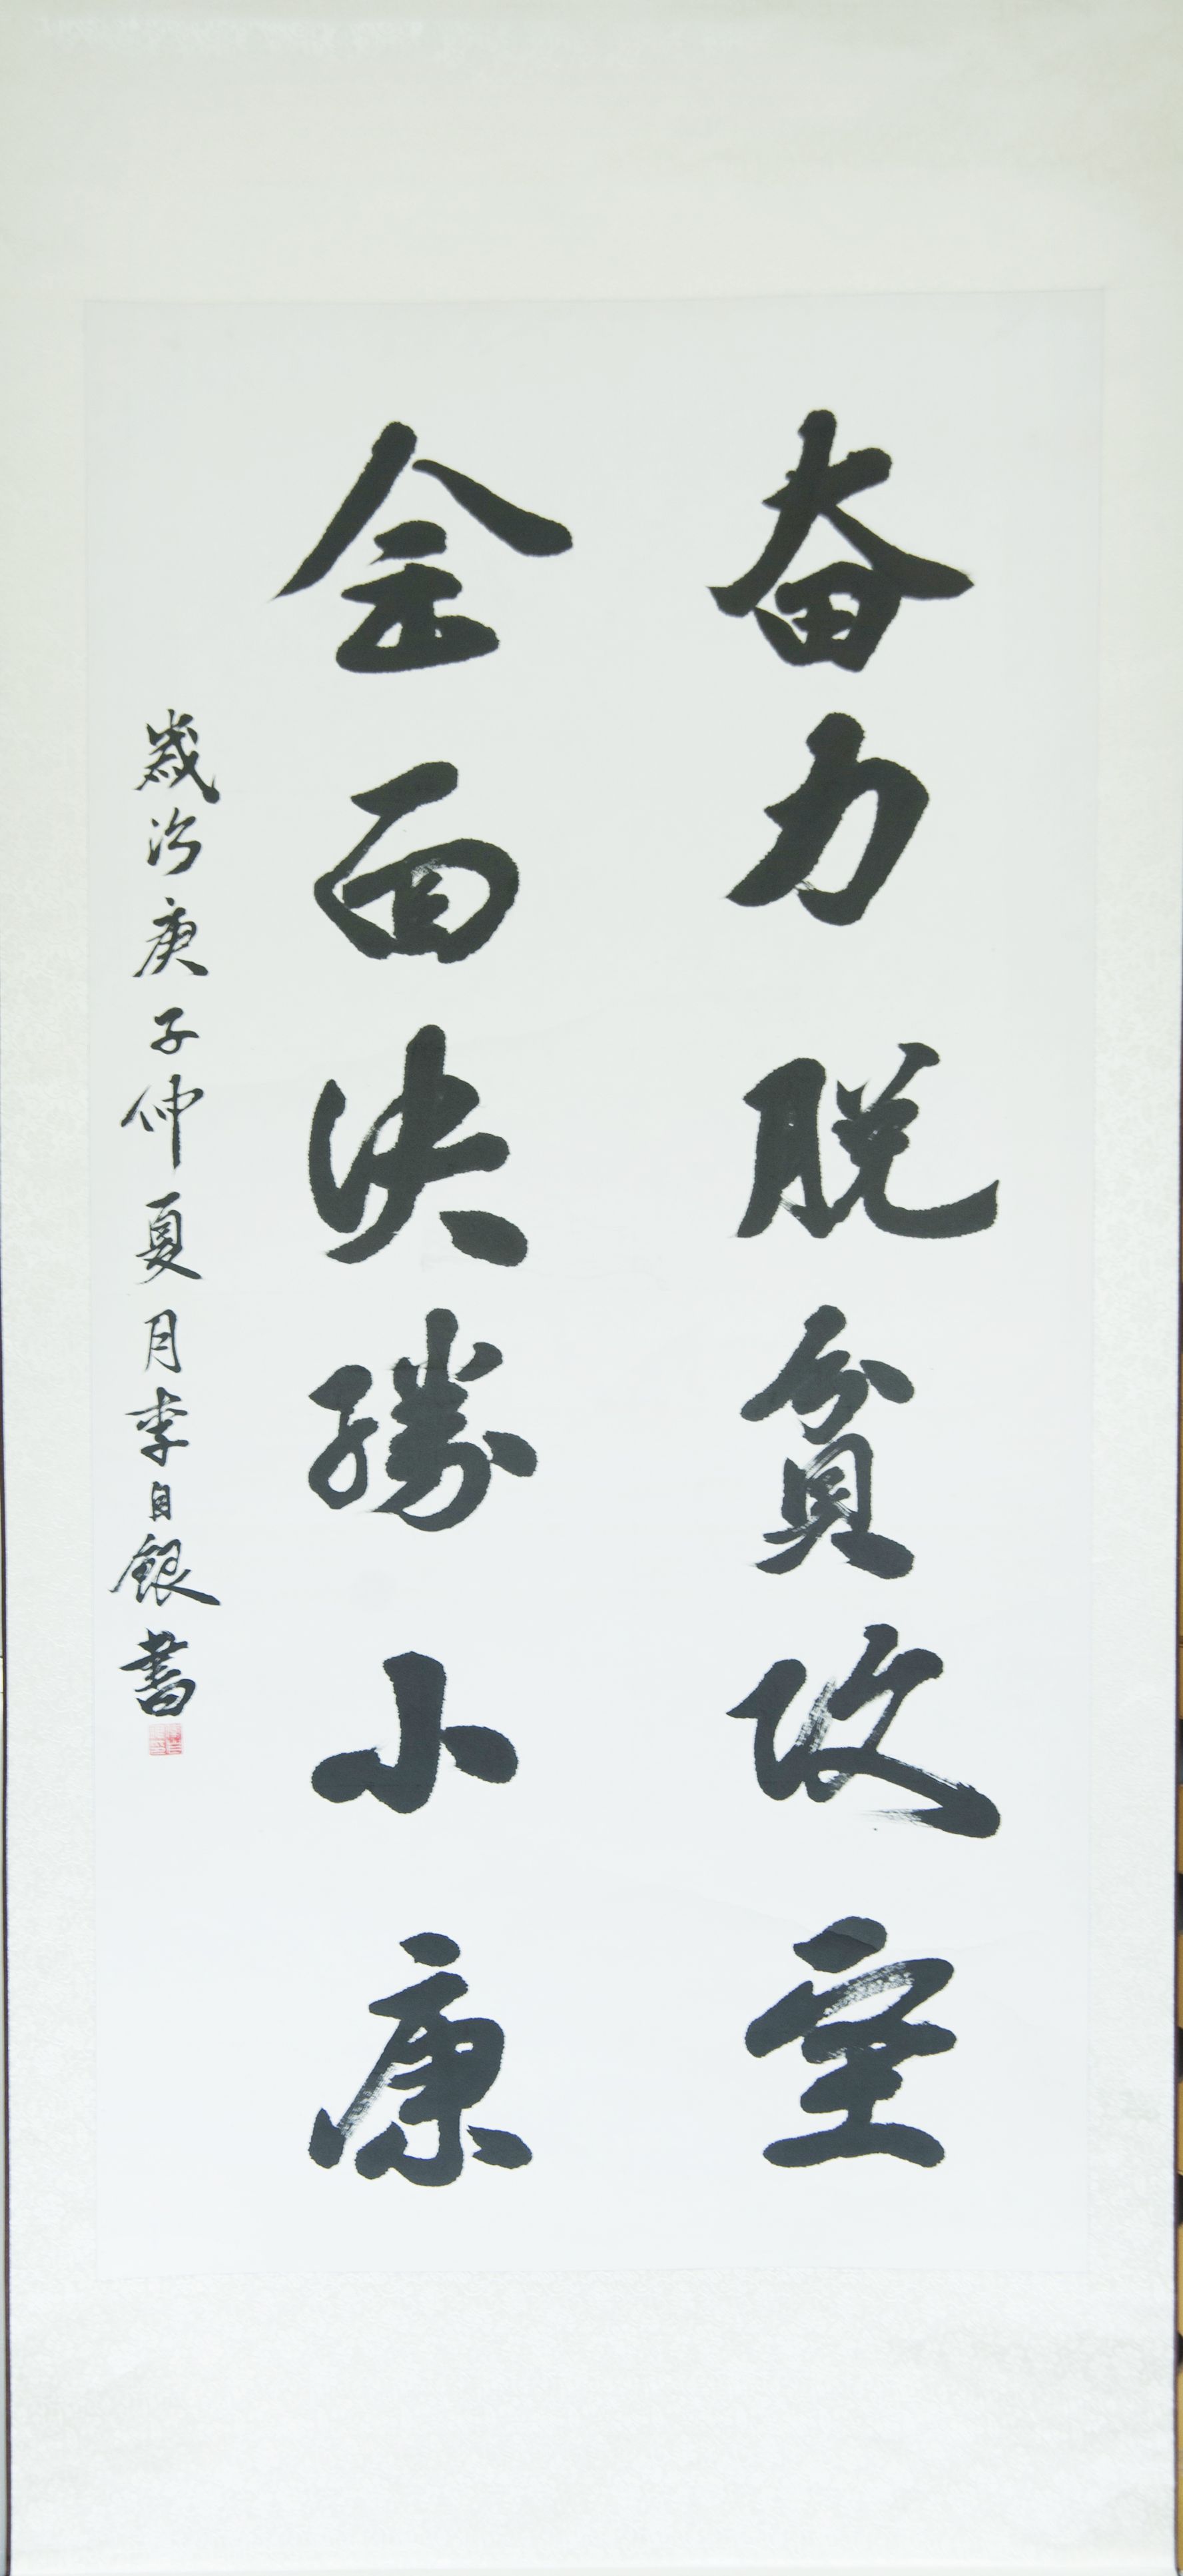 奋力脱貧攻坚
全面决勝小康
歲次庚子仲夏月李自銀書